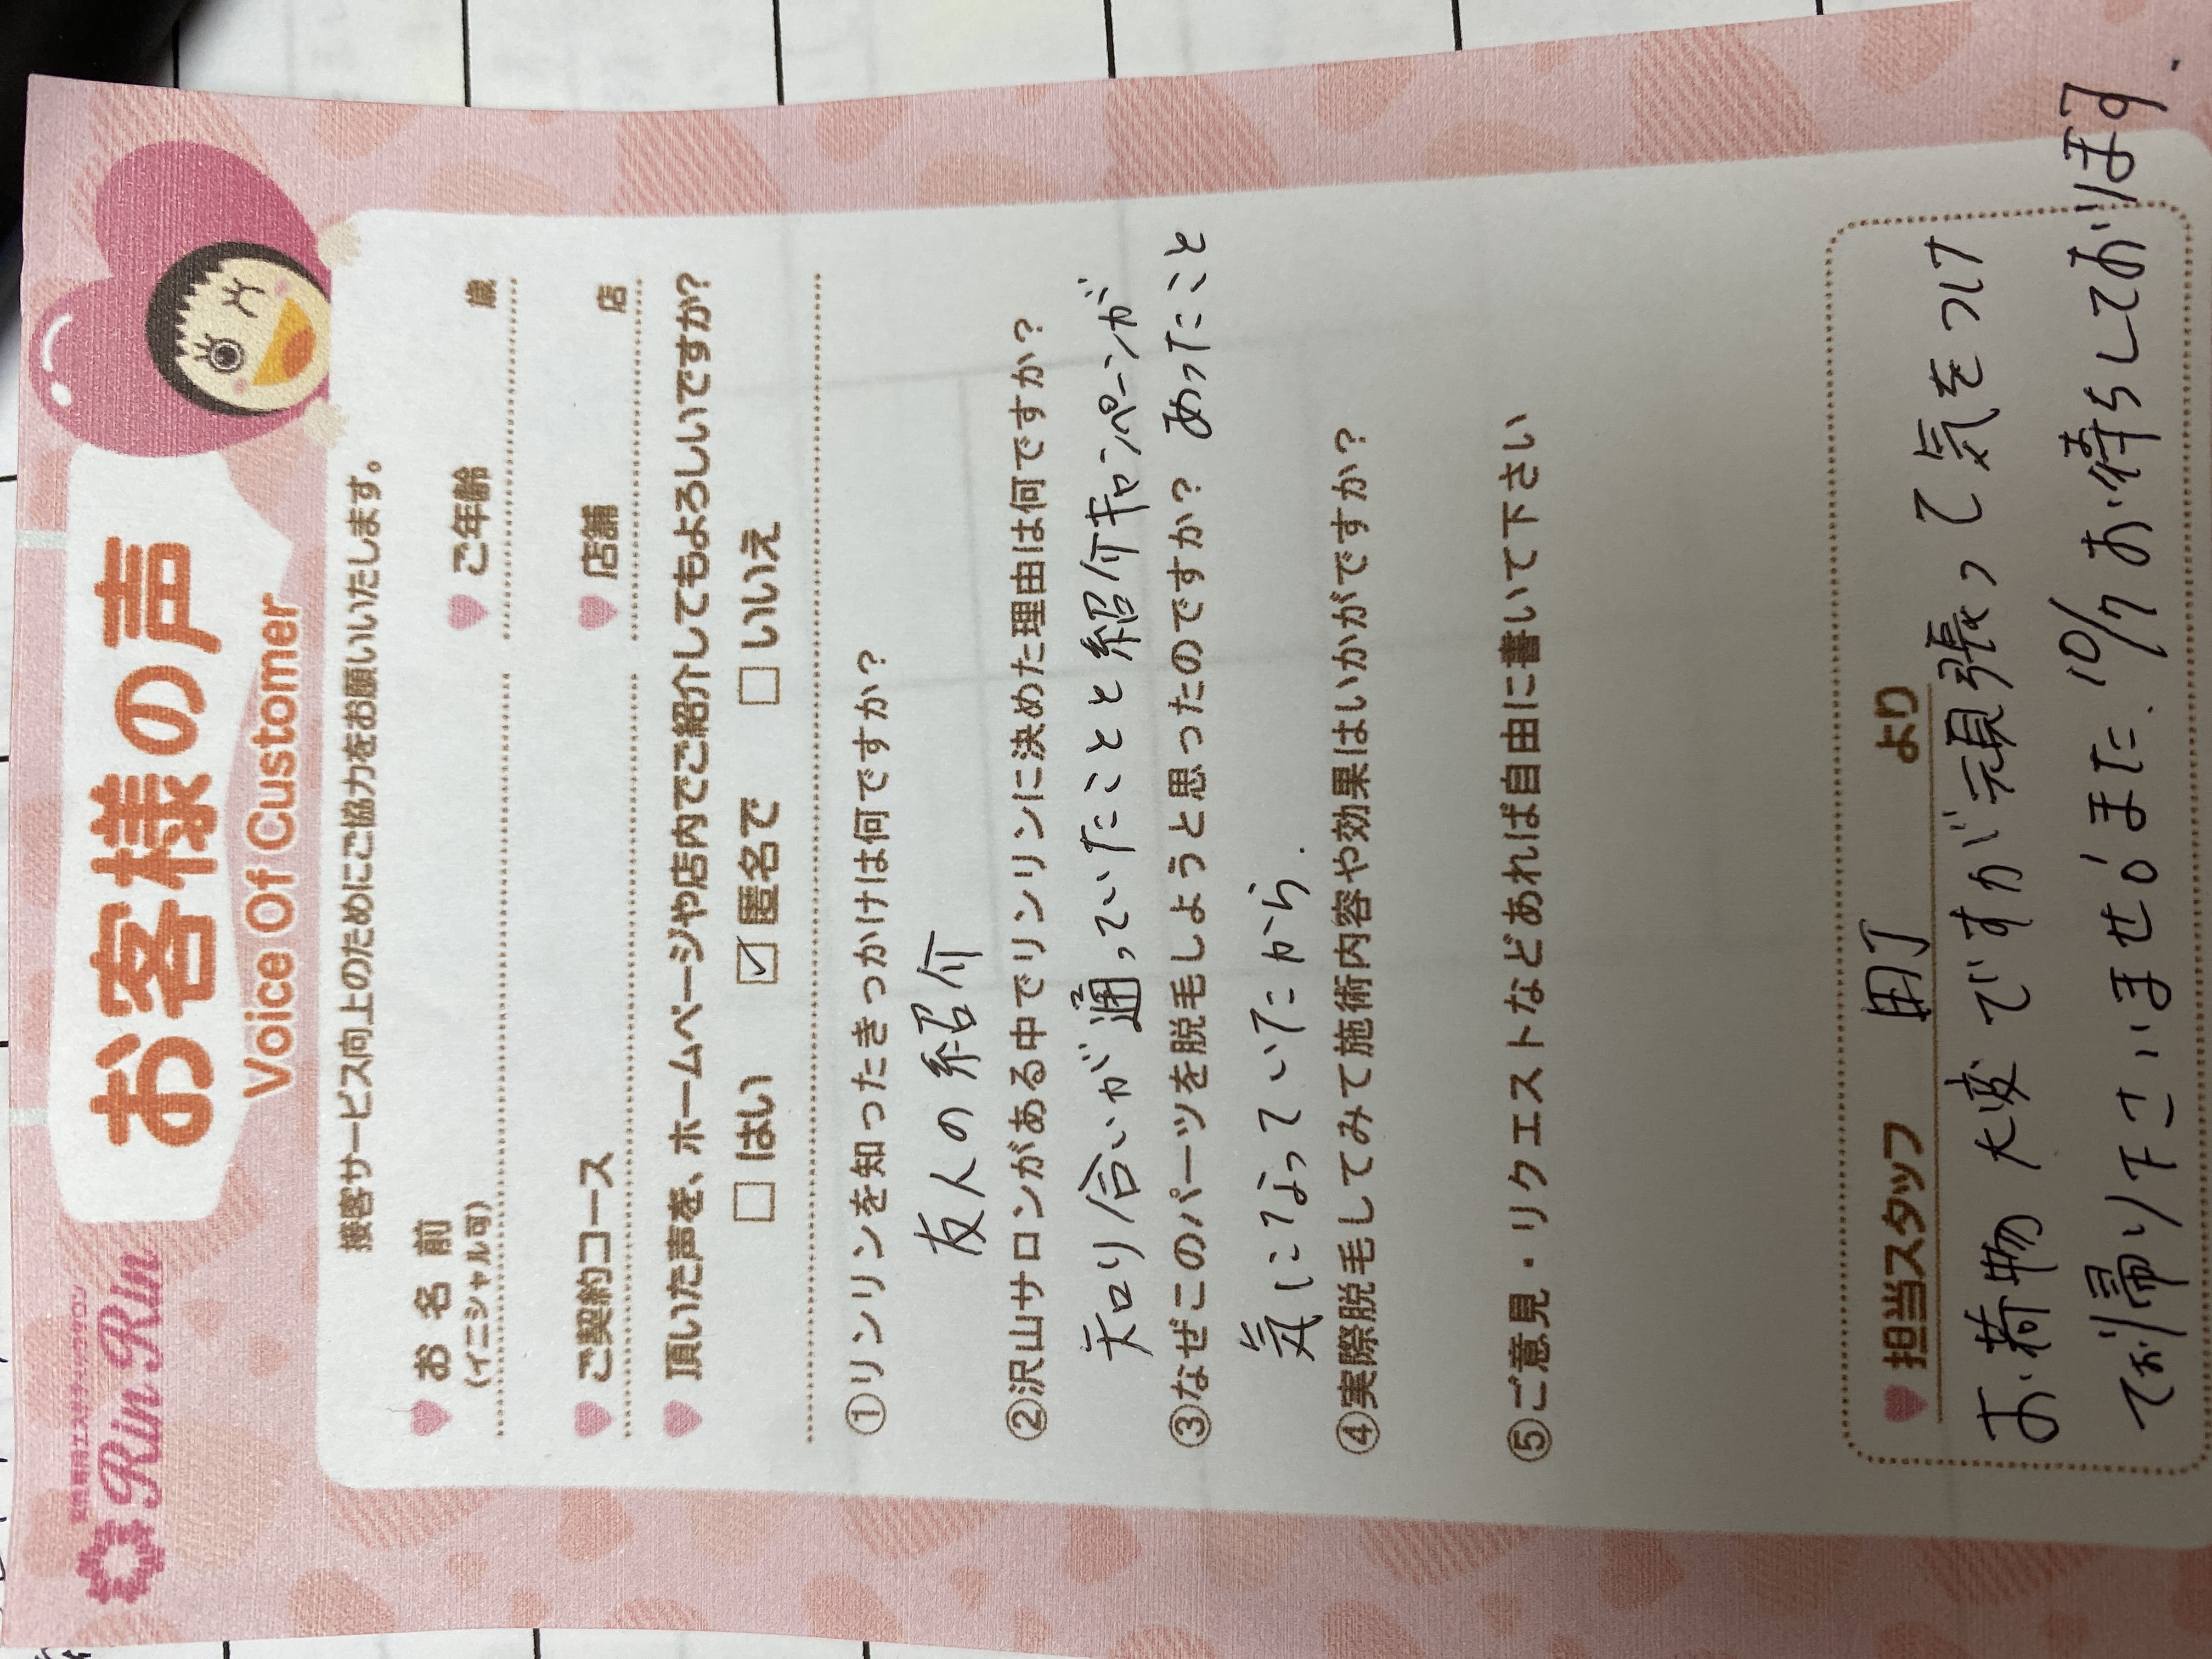 女性専用エステティックサロン
Rin Rin
お客様の声
Voice Of Customer
接客サービス向上のためにご協力をお願いいたします。
お名前 ご年齢 歳
(イニシャル可)
ご契約コース 店舗 店
頂いた声を、ホームページや店内でご紹介してもよろしいですか?
□ はい ☑ 匿名で □ いいえ
①リンリンを知ったきっかけは何ですか?
友人の紹介
②沢山サロンがある中でリンリンに決めた理由は何ですか?
知り合いが通っていたことと紹介キャンペーンが
あったこと
③なぜこのパーツを脱毛しようと思ったのですか?
気になっていたから.
④実際脱毛してみて施術内容や効果はいかがですか?
⑤ご意見・リクエストなどあれば自由に書いて下さい
担当スタッフ より
お荷物大変ですが頑張って気をつけ
てお帰り下さいませ。また、10/7お待ちしております.